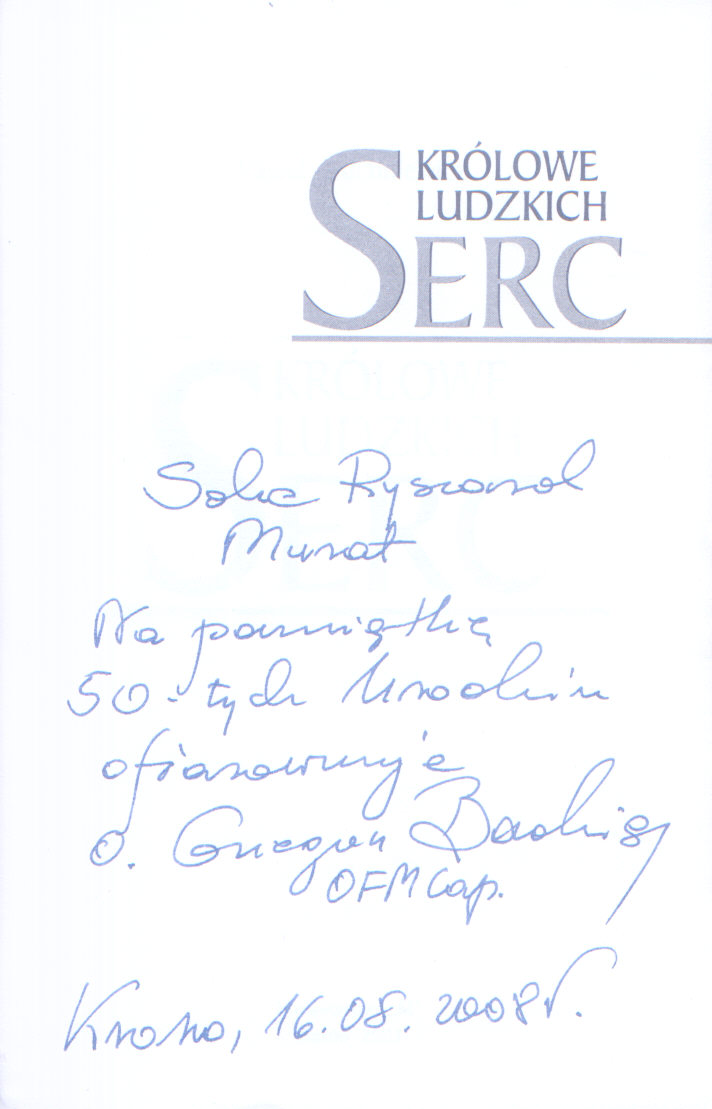 KRÓLOWE
LUDZKICH
SERC
Ryszard
Murat
Na pamiątkę
50-tych Urodzin
ofiarowuję
O. Grzegorz
OFMCap.
Krosno, 16.08.2008r.